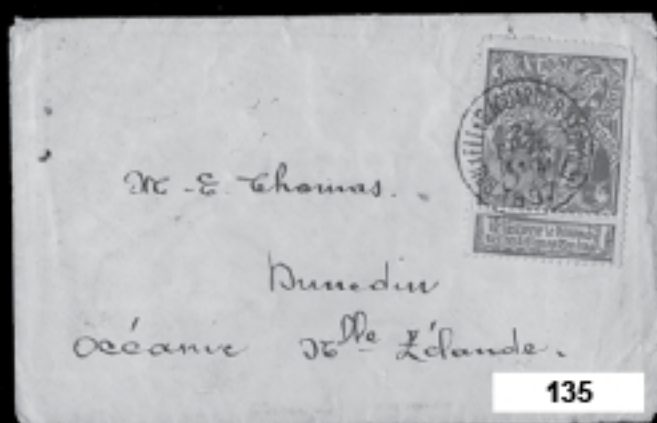 M E. Thomas.
Dunedin
Océanie Nlle Zélande.
135